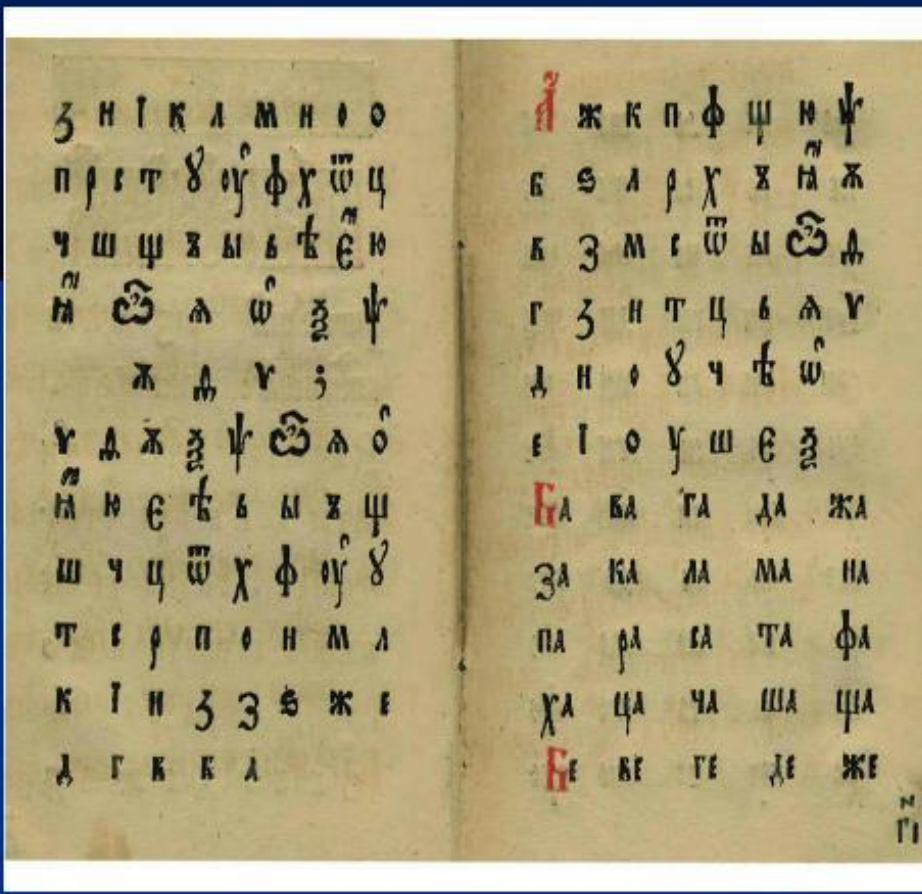 ꙁ и ї к л м н о о
п р с т ꙋ оу҆ ф х ѿ ц
ч ш щ ъ ы ь ѣ є҆ ю
ꙗ҆ ѽ ѧ ѡ҆ ѯ ѱ
ѫ ѳ ѵ ;
ѵ ѳ ѫ ѯ ѱ ѽ ѧ о҆
ꙗ҆ ю є ѣ ь ы ъ щ
ш ч ц ѿ х ф оу҆ ꙋ
т с р п о н м л
к ї и ꙁ з ѕ ж е
д г в б а
А҆ ж к п ф щ ю ѱ
б ѕ л р х ъ ꙗ҆ ѫ
в з м с ѿ ы ѽ ѳ
г ꙁ н т ц ь ѧ ѵ
д и о ꙋ ч ѣ ѡ҆
е ї о у ш є ѯ
Ба ва га да жа
за ка ла ма на
па ра са та фа
ха ца ча ша ща
Бе ве ге де же
гі